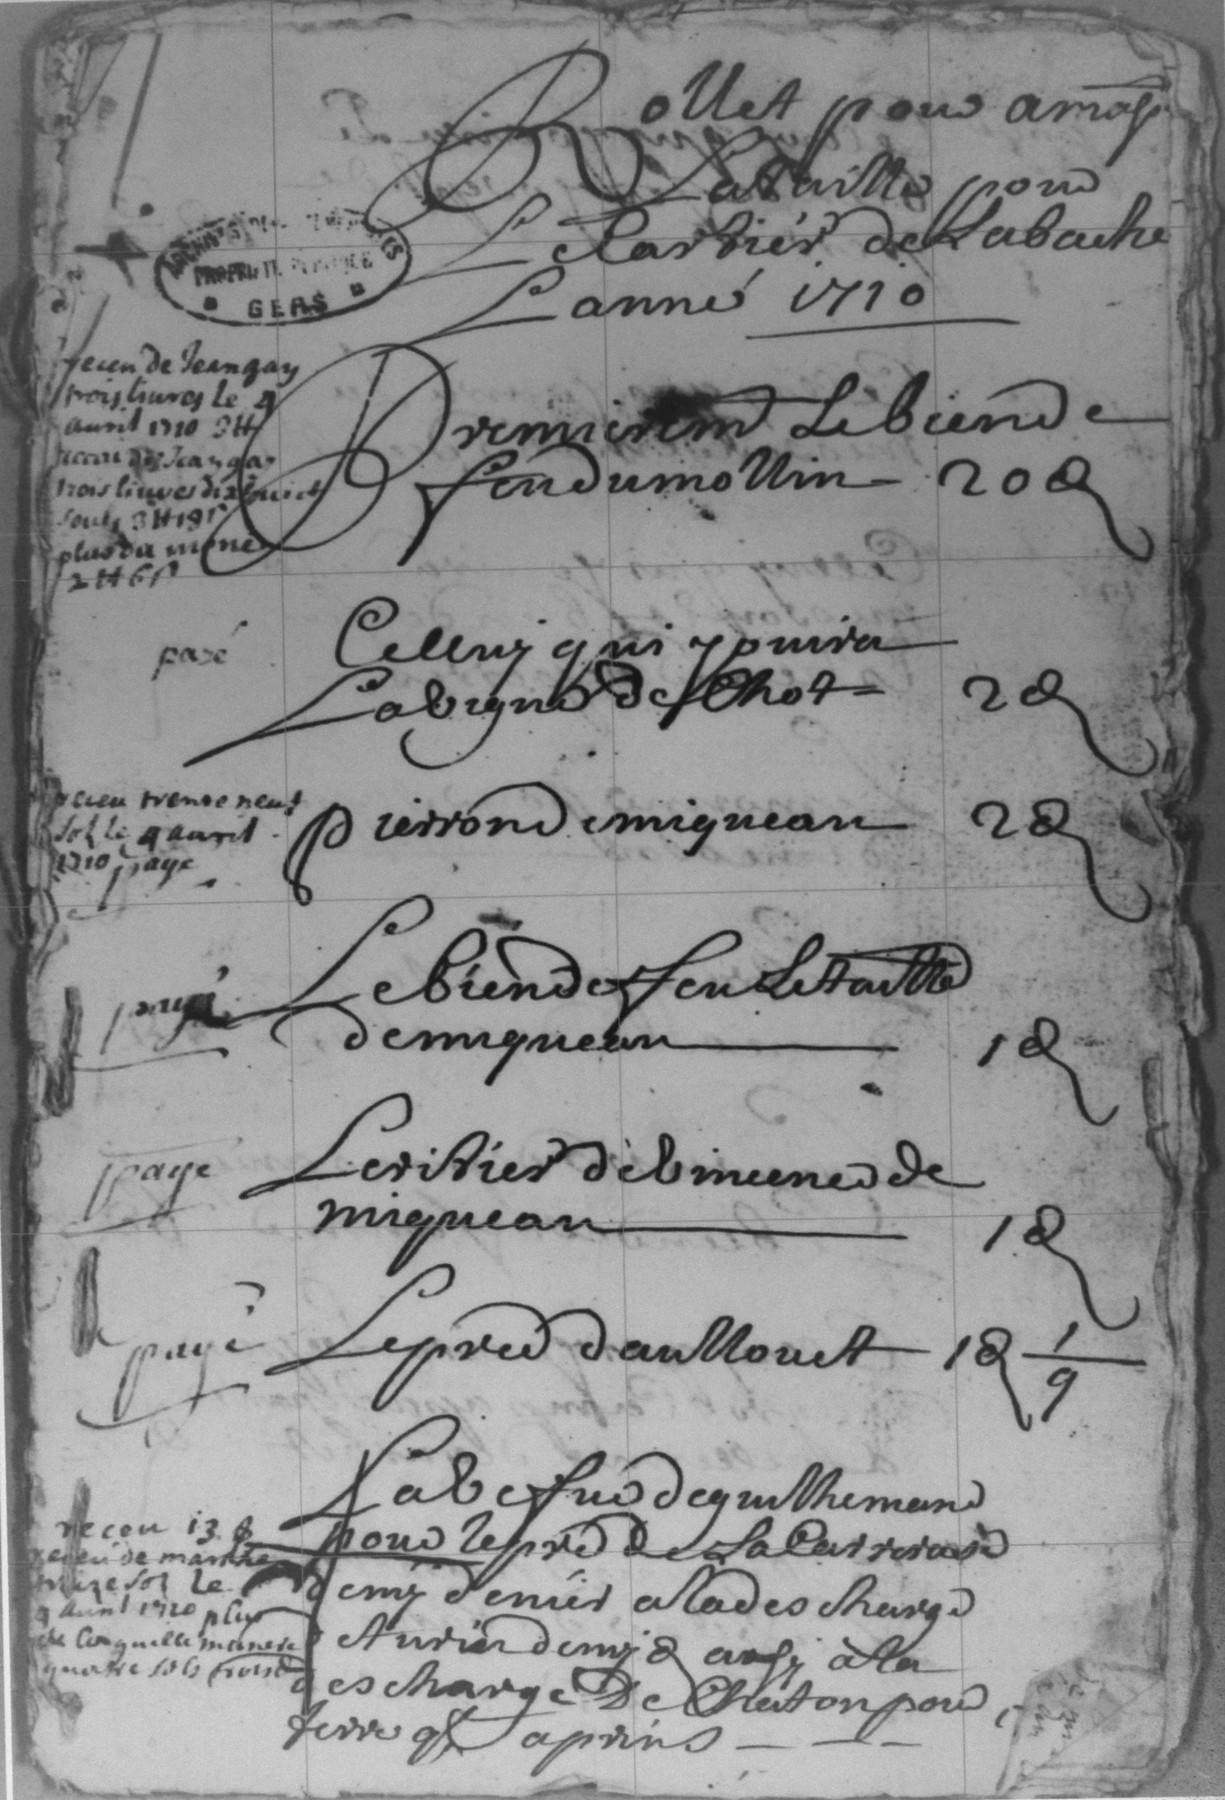 Rollet pour amass
Lataille pour
Le Cartier de Labache
Lanné 1710
ARCHIVES DEPARTEMENTALES
PROPRIETE PUBLIQUE
GERS
receu de Jeangay
trois livres le 9
auril 1710 3tt
receu de Jeangay
trois livres dix huict
souls 3tt 18s
plus du mene
2tt 6s
Premierem Le bien de
feu du mollin 20 d
payé
Celluy qui jouira
La bigne de Chot 2 d
receu trente neuf
sol le 9 auril
1710 paye
pierron de miquean 2 d
payé
Le bien de feu Letaille
de miquean 1 d
payé
Leritier de bincens de
miquean 1 d
payé
Le pred daullouet 1 d 1/9
receu 13 s
receu de
treize sol le
9 auril 1710 plus
quatre sols trois d
La befue de guilheman
pour le pred de La Carrerasse
demy denier a la descharge
demy d aussy à la
descharge de Chiton pour
terre ql a prins